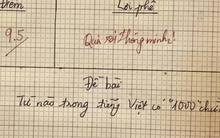 điểm Lời phê
9,5 Quá rồi thông minh!
Đề bài
Từ nào trong tiếng Việt có "1000" chữ